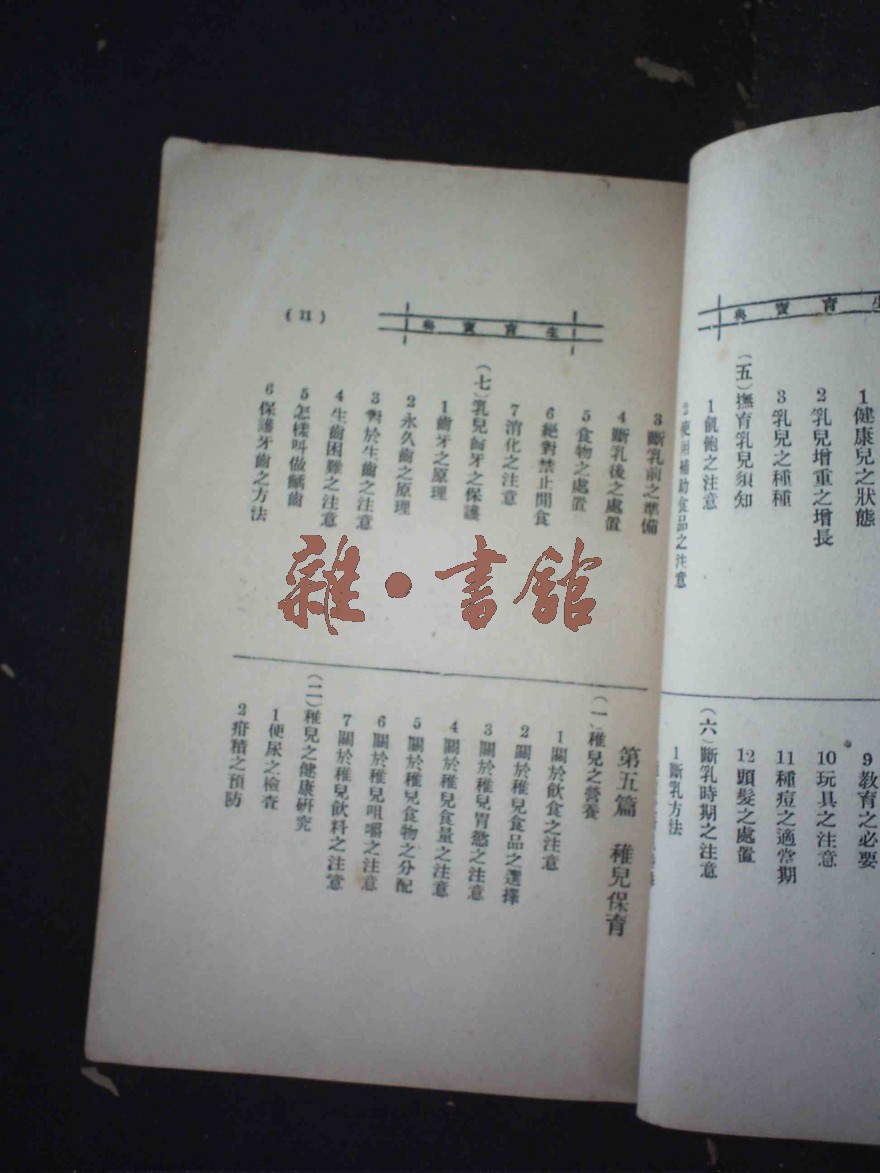 育寶典
1健康兒之狀態
2乳兒增重之增長
3乳兒之種種
（五）撫育乳兒須知
1飢飽之注意
2使用補助食品之注意
9教育之必要
10玩具之注意
11種痘之適當期
12頭髮之處置
（六）斷乳時期之注意
1斷乳方法
生育寶典
(11)
3斷乳前之準備
4斷乳後之處置
5食物之處置
6絕對禁止閒食
7消化之注意
（七）乳兒齒牙之保護
1齒牙之原理
2永久齒之原理
3對於生齒之注意
4生齒困難之注意
5怎樣叫做齲齒
6保護牙齒之方法
雜·書館
第五篇　稚兒保育
（一）稚兒之營養
1關於飲食之注意
2關於稚兒食品之選擇
3關於稚兒胃慾之注意
4關於稚兒食量之注意
5關於稚兒食物之分配
6關於稚兒咀嚼之注意
7關於稚兒飲料之注意
（二）稚兒之健康研究
1便尿之檢查
2疳積之預防